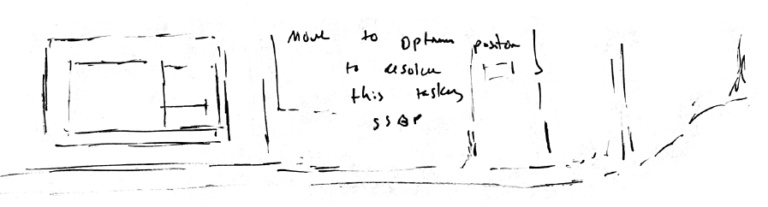 Move to Optimum position
to resolve
this tasking